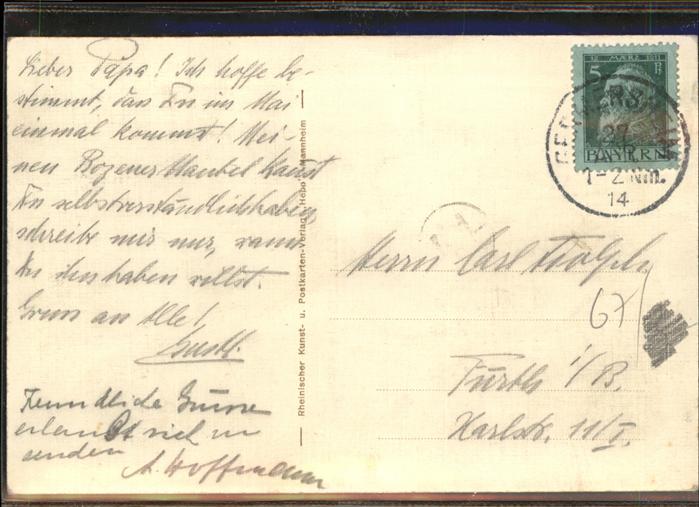 Lieber Papa! Ich hoffe be-
stimmt, dass Du im Mai
einmal kommst! Mei-
nen Bozener Mantel kannst
Du selbstverständlich haben,
schreibe mir nur, wann
Du ihn haben willst.
Gruss an Alle!
Gustl.
Freundliche Grüsse
erlaubt sich zu
senden A. Hoffmann
Rheinischer Kunst- u. Postkarten-Verlag
Mannheim
12 MÄRZ 1911
5 Pf
BAYERN
27
1-2 Nm.
14
Herrn Carl
67
Fürth i/B.
Karlstr. 11/I.